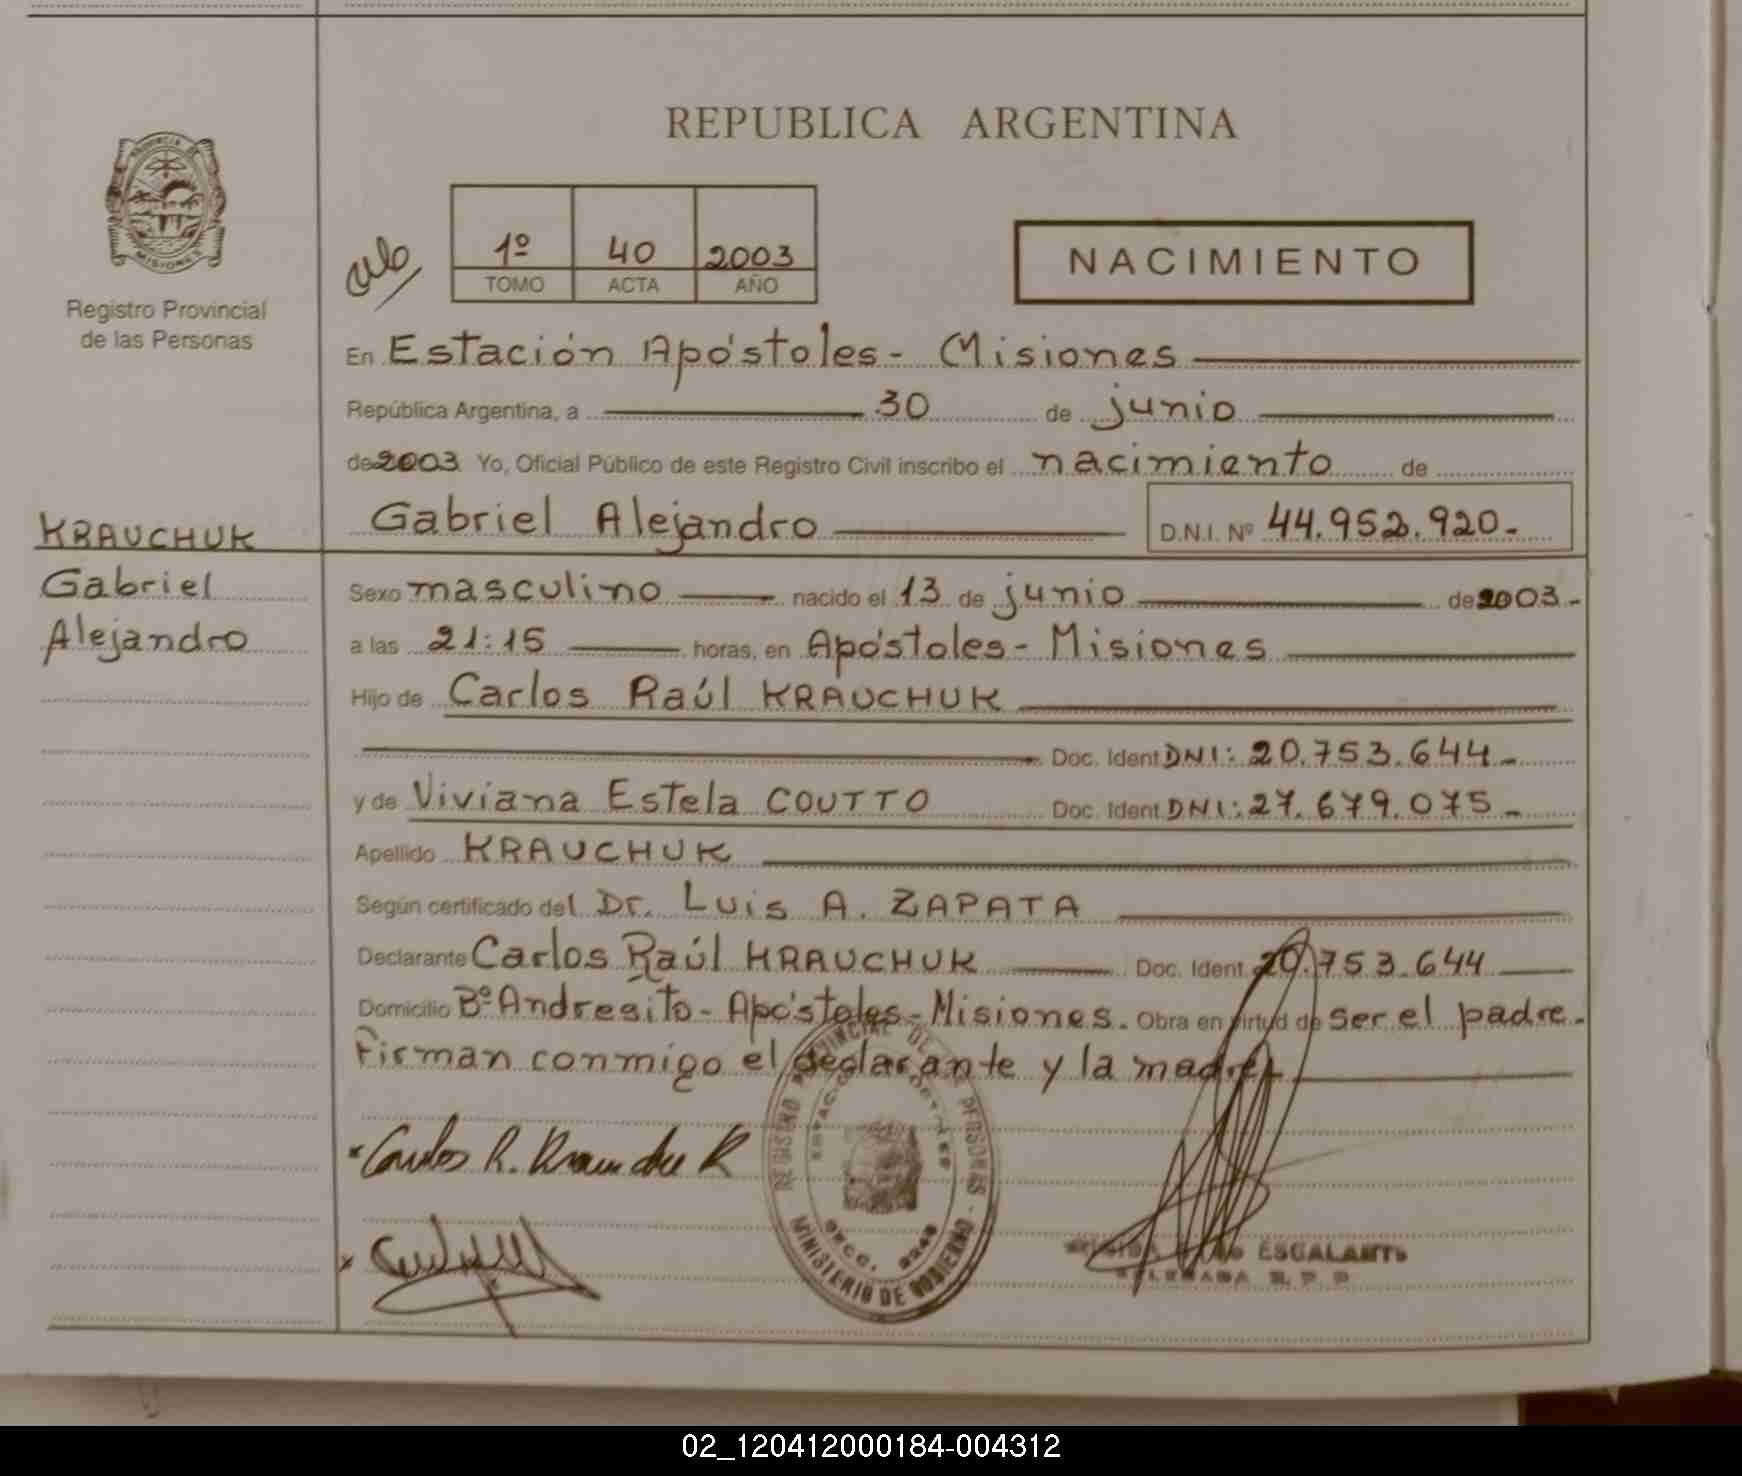 REPUBLICA ARGENTINA
PROVINCIA DE
MISIONES
Registro Provincial
de las Personas
1º 40 2003
TOMO ACTA AÑO
NACIMIENTO
En Estación Apóstoles - Misiones
República Argentina, a 30 de junio
de 2003 Yo, Oficial Público de este Registro Civil inscribo el nacimiento de
Gabriel Alejandro D.N.I. Nº 44.952.920.-
KRAUCHUK
Gabriel
Alejandro
Sexo masculino nacido el 13 de junio de 2003.-
a las 21:15 horas, en Apóstoles - Misiones
Hijo de Carlos Raúl KRAUCHUK
Doc. Ident DNI: 20.753.644.-
y de Viviana Estela COUTTO Doc. Ident DNI: 27.679.075.-
Apellido KRAUCHUK
Según certificado del Dr. Luis A. ZAPATA
Declarante Carlos Raúl KRAUCHUK Doc. Ident. 20.753.644
Domicilio Bº Andresito - Apóstoles - Misiones. Obra en virtud de ser el padre.-
Firman conmigo el declarante y la madre.
Carlos R. Krauchuk
REGISTRO PROVINCIAL DE LAS PERSONAS - MINISTERIO DE GOBIERNO
ESCALANTE
DELEGADA R. P. P.
02_120412000184-004312